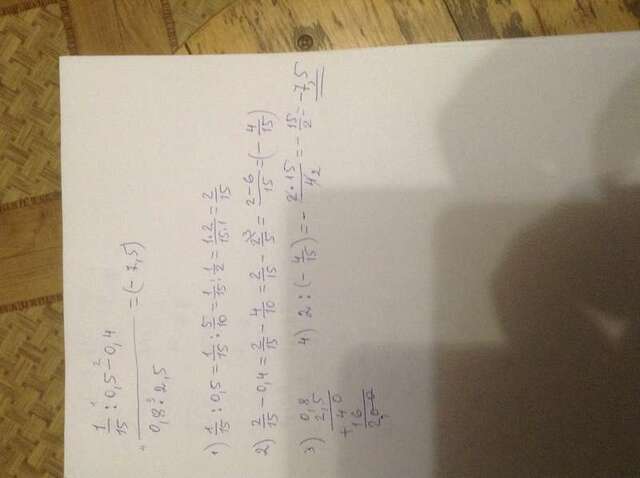 1/15 :¹ 0,5 -² 0,4
4 ———————— = (- 7,5)
0,8 ·³ 2,5
1) 1/15 : 0,5 = 1/15 : 5/10 = 1/15 : 1/2 = 1·2/15·1 = 2/15
2) 2/15 - 0,4 = 2/15 - 4/10 = 2/15 - 2³/5 = 2-6/15 = (- 4/15)
3) 0,8
2,5
+ 40
16
2,00
4) 2 : (- 4/15) = - 2·15/4₂ = - 15/2 = -7,5